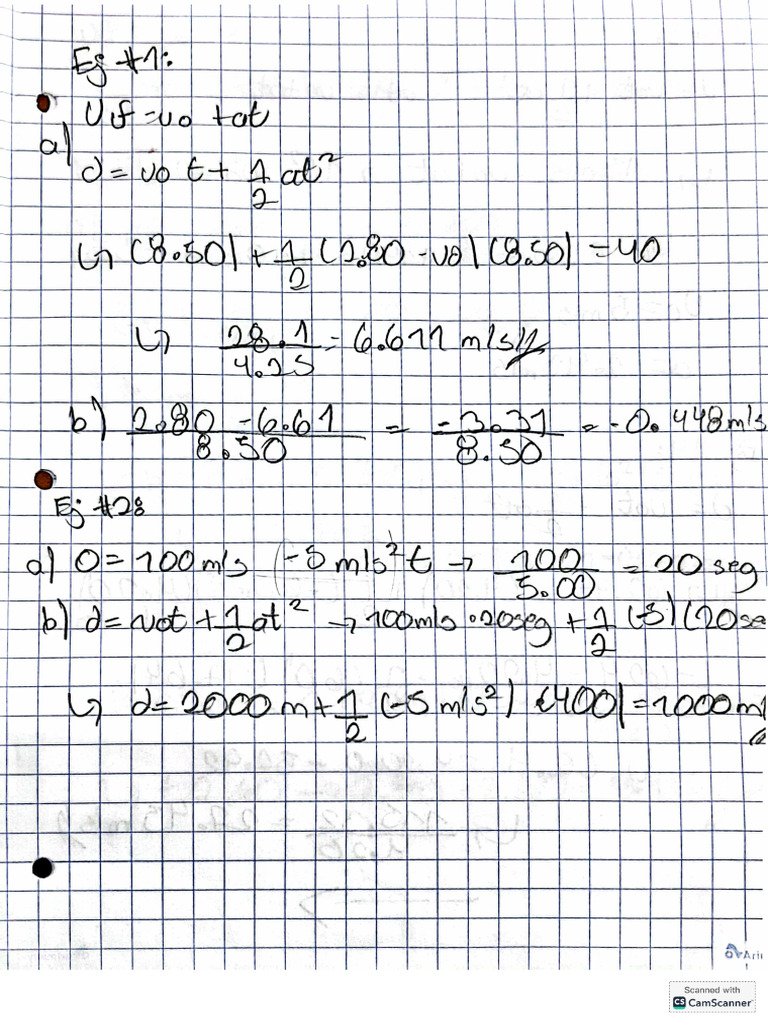 Ej #1:
Vf = vo + at
a) d = vo t + 1/2 at²
↳ (8.50) + 1/2 (2.80 - vo) (8.50) = 40
↳ 28.1/4.25 = 6.611 m/s//
b) 2.80 - 6.61/8.50 = -3.31/8.50 = -0.448 m/s
Ej #2:
a) 0 = 100 m/s (-5 m/s² t → 100/5.00 = 20 seg
b) d = vot + 1/2 at² → 100 m/s · 20 seg + 1/2 (-5) (20 se
↳ d = 2000 m + 1/2 (-5 m/s²) (400) = 1000 m//
Scanned with
CS CamScanner